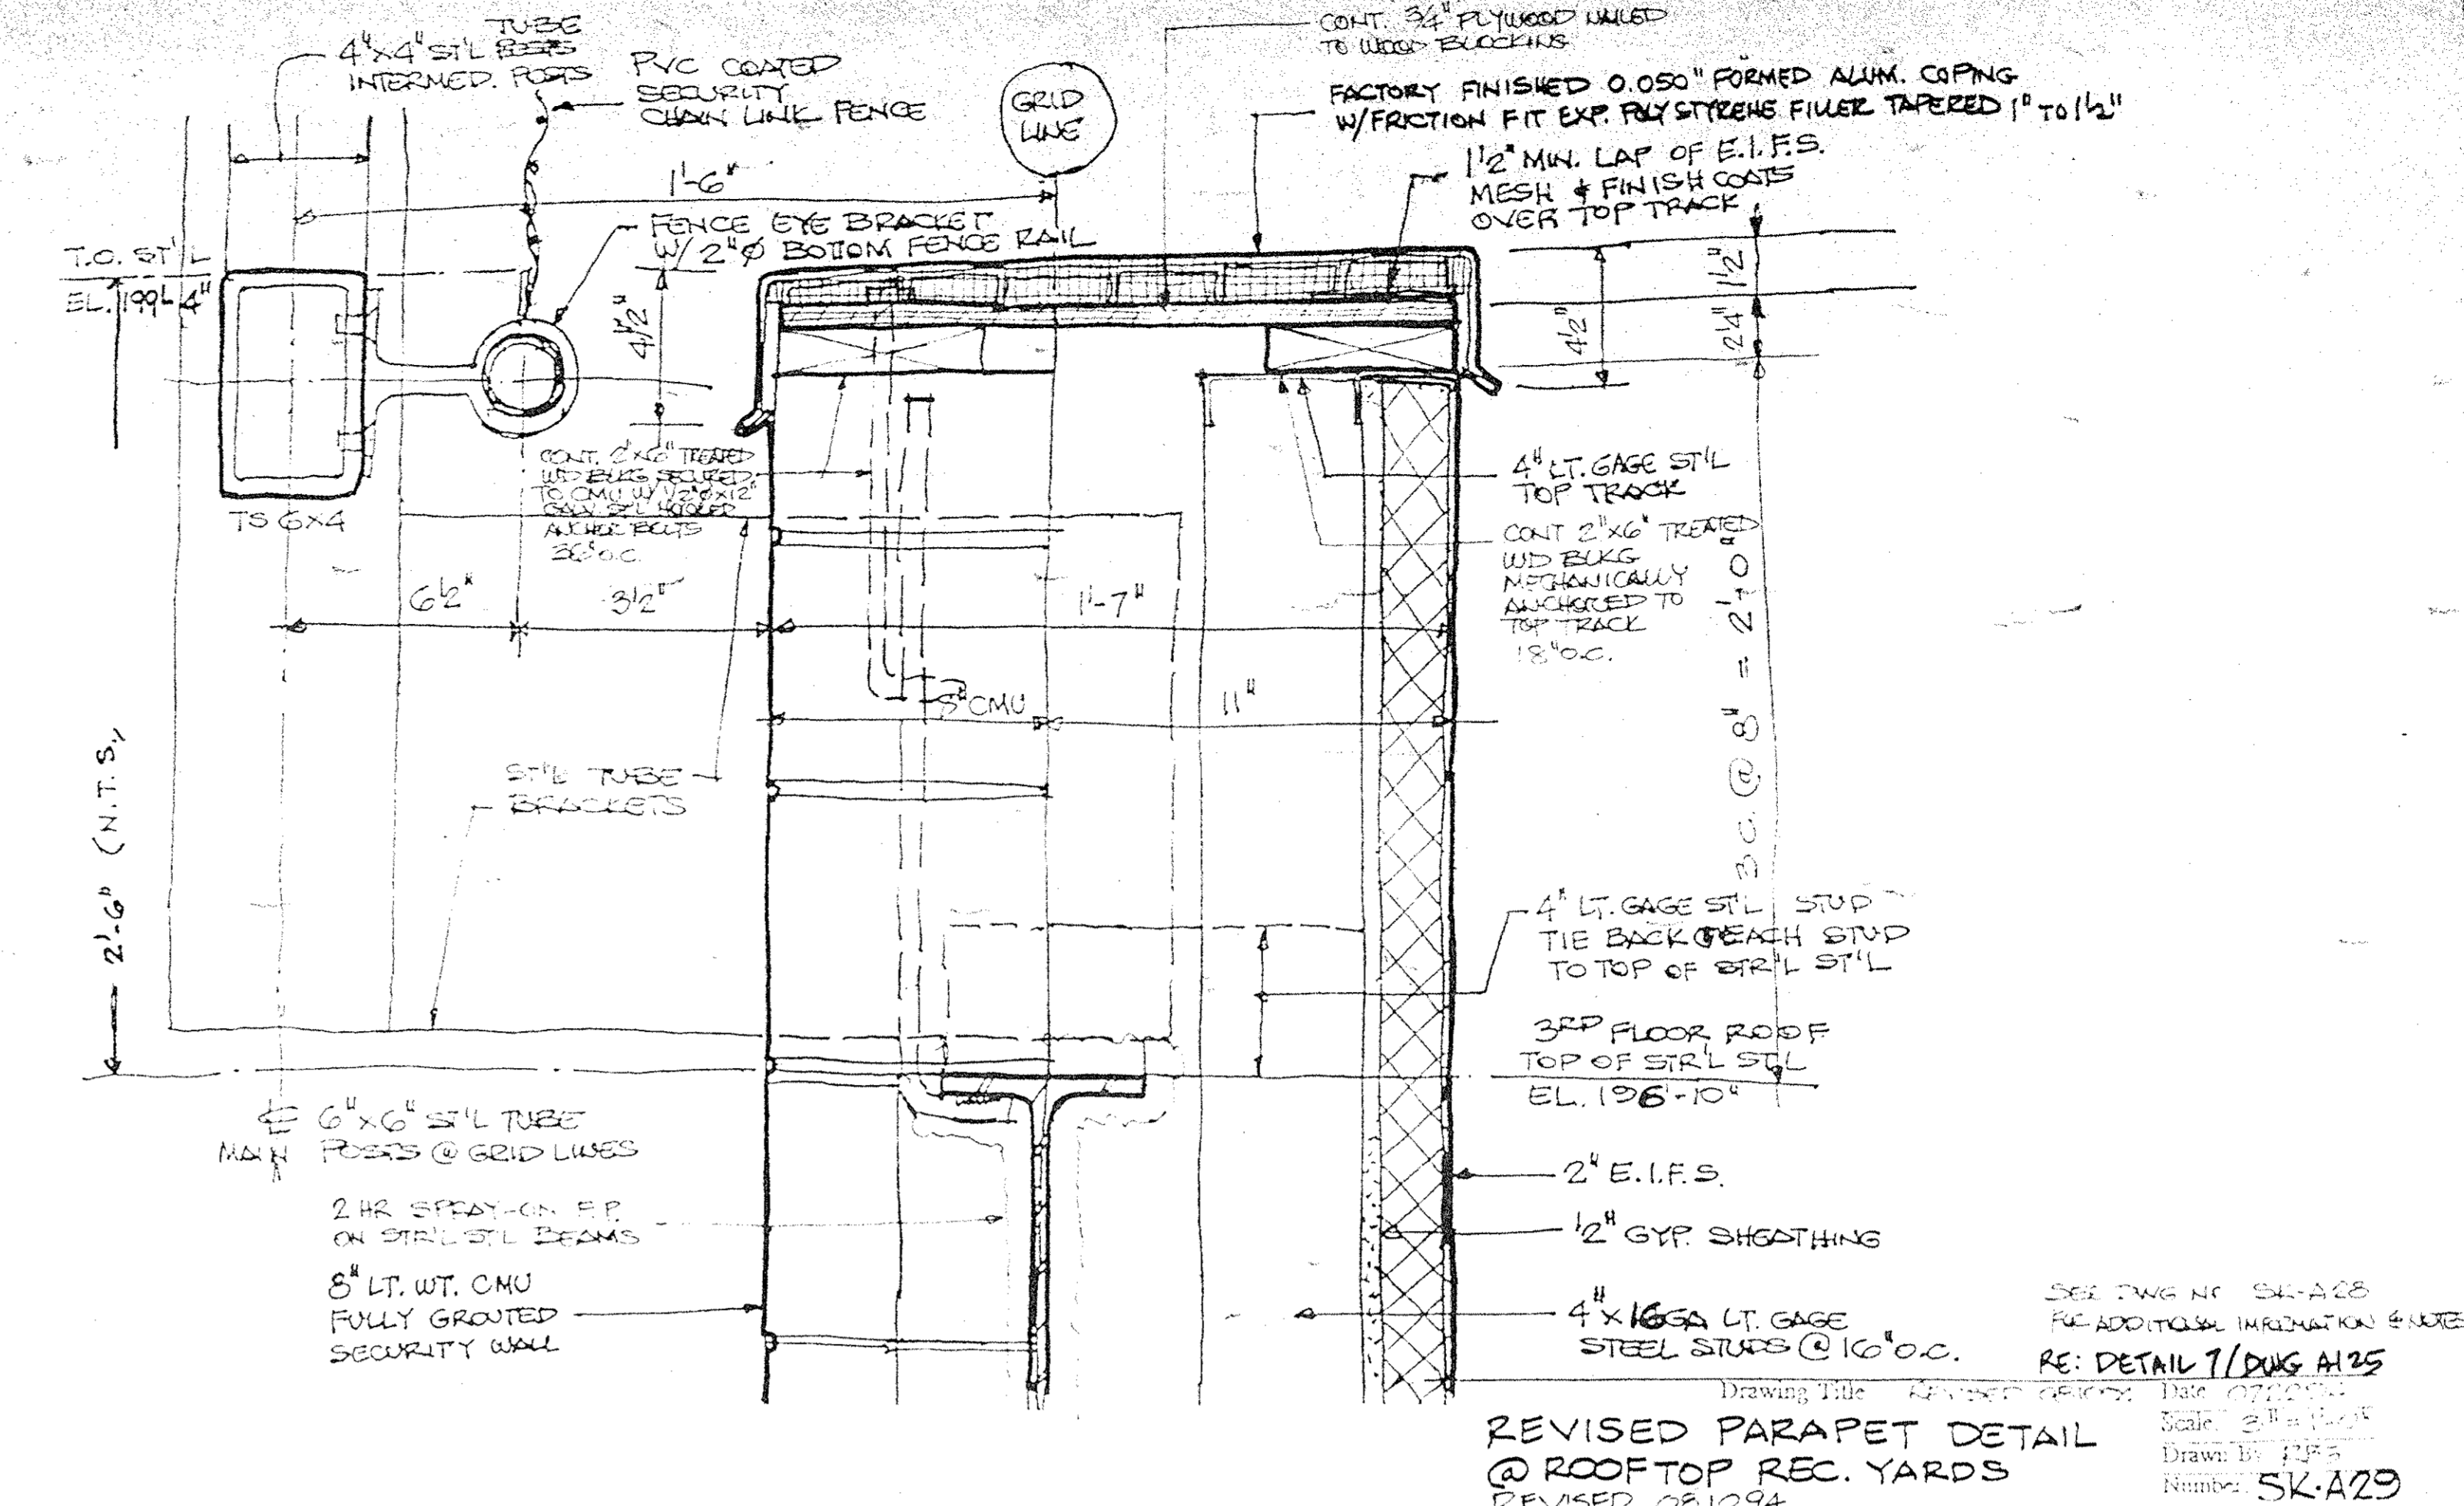 TUBE
4"x4" ST'L POSTS
INTERMED. POSTS
PVC COATED
SECURITY
CHAIN LINK FENCE
GRID
LINE
CONT. 3/4" PLYWOOD NAILED
TO WOOD BLOCKING
FACTORY FINISHED 0.050" FORMED ALUM. COPING
W/FRICTION FIT EXP. POLYSTYRENE FILLER TAPERED 1" TO 1 1/2"
1 1/2" MIN. LAP OF E.I.F.S.
MESH & FINISH COATS
OVER TOP TRACK
1'-6"
FENCE EYE BRACKET
W/ 2"Ø BOTTOM FENCE RAIL
T.O. ST'L
EL. 199'-4"
4 1/2"
4 1/2"
1 1/2"
2 1/4"
TS 6x4
CONT. 2"x6" TREATED
WD BLKG SECURED
TO CMU W/ 1/2"Øx12"
GALV. ST'L HOOKED
ANCHOR BOLTS
36" O.C.
4" LT. GAGE ST'L
TOP TRACK
CONT 2"x6" TREATED
WD BLKG
MECHANICALLY
ANCHORED TO
TOP TRACK
18" O.C.
6 1/2"
3 1/2"
1'-7"
8" CMU
11"
3 C. @ 8" = 2'-0"
2'-6" (N.T.S.)
ST'L TUBE
BRACKETS
4" LT. GAGE ST'L STUD
TIE BACK @ EACH STUD
TO TOP OF STR'L ST'L
3RD FLOOR ROOF
TOP OF STR'L ST'L
EL. 196'-10"
℄ 6"x6" ST'L TUBE
MAIN POSTS @ GRID LINES
2 HR SPRAY-ON F.P.
ON STR'L ST'L BEAMS
8" LT. WT. CMU
FULLY GROUTED
SECURITY WALL
2" E.I.F.S.
1/2" GYP. SHEATHING
4" x 16GA LT. GAGE
STEEL STUDS @ 16" O.C.
SEE DWG Nº SK-A28
FOR ADDITIONAL INFORMATION & NOTES
RE: DETAIL 7/DWG A125
Drawing Title REVISED Date
REVISED PARAPET DETAIL
@ ROOFTOP REC. YARDS
REVISED 081094
Scale 3" = 1'-0"
Drawn By
Number SK-A29